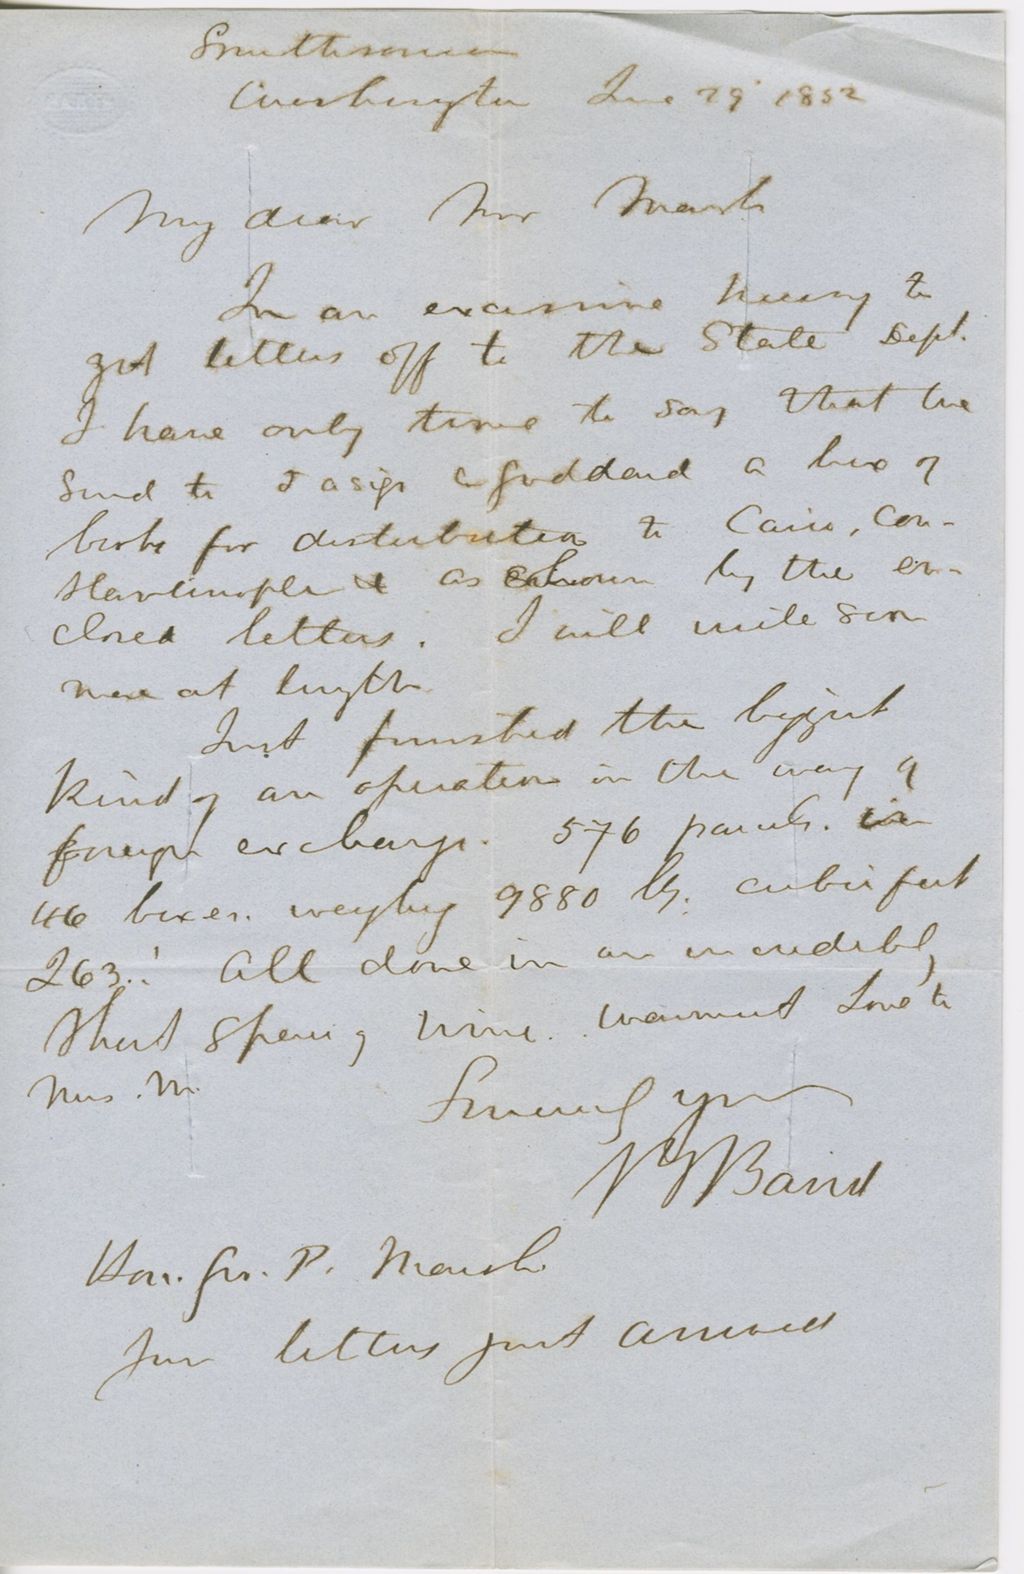 Smithsonian
Washington June 29 1852
My dear Mr Marsh
In an excessive hurry to
get letters off to the State Dept.
I have only time to say that we
send to & Goddard a box of
books for distribution to Cairo, Con-
stantinople & as shown by the en-
closed letters. I will write soon
more at length
Just finished the biggest
kind of an operation in the way of
foreign exchange. 576 parcels. in
46 boxes. weighing 9880 lbs. cubic feet
263.! All done in an incredibly
short space of time. Warmest love to
Mrs. M.
Sincerely yrs
S F Baird
Hon. Geo. P. Marsh
Your letters just arrived